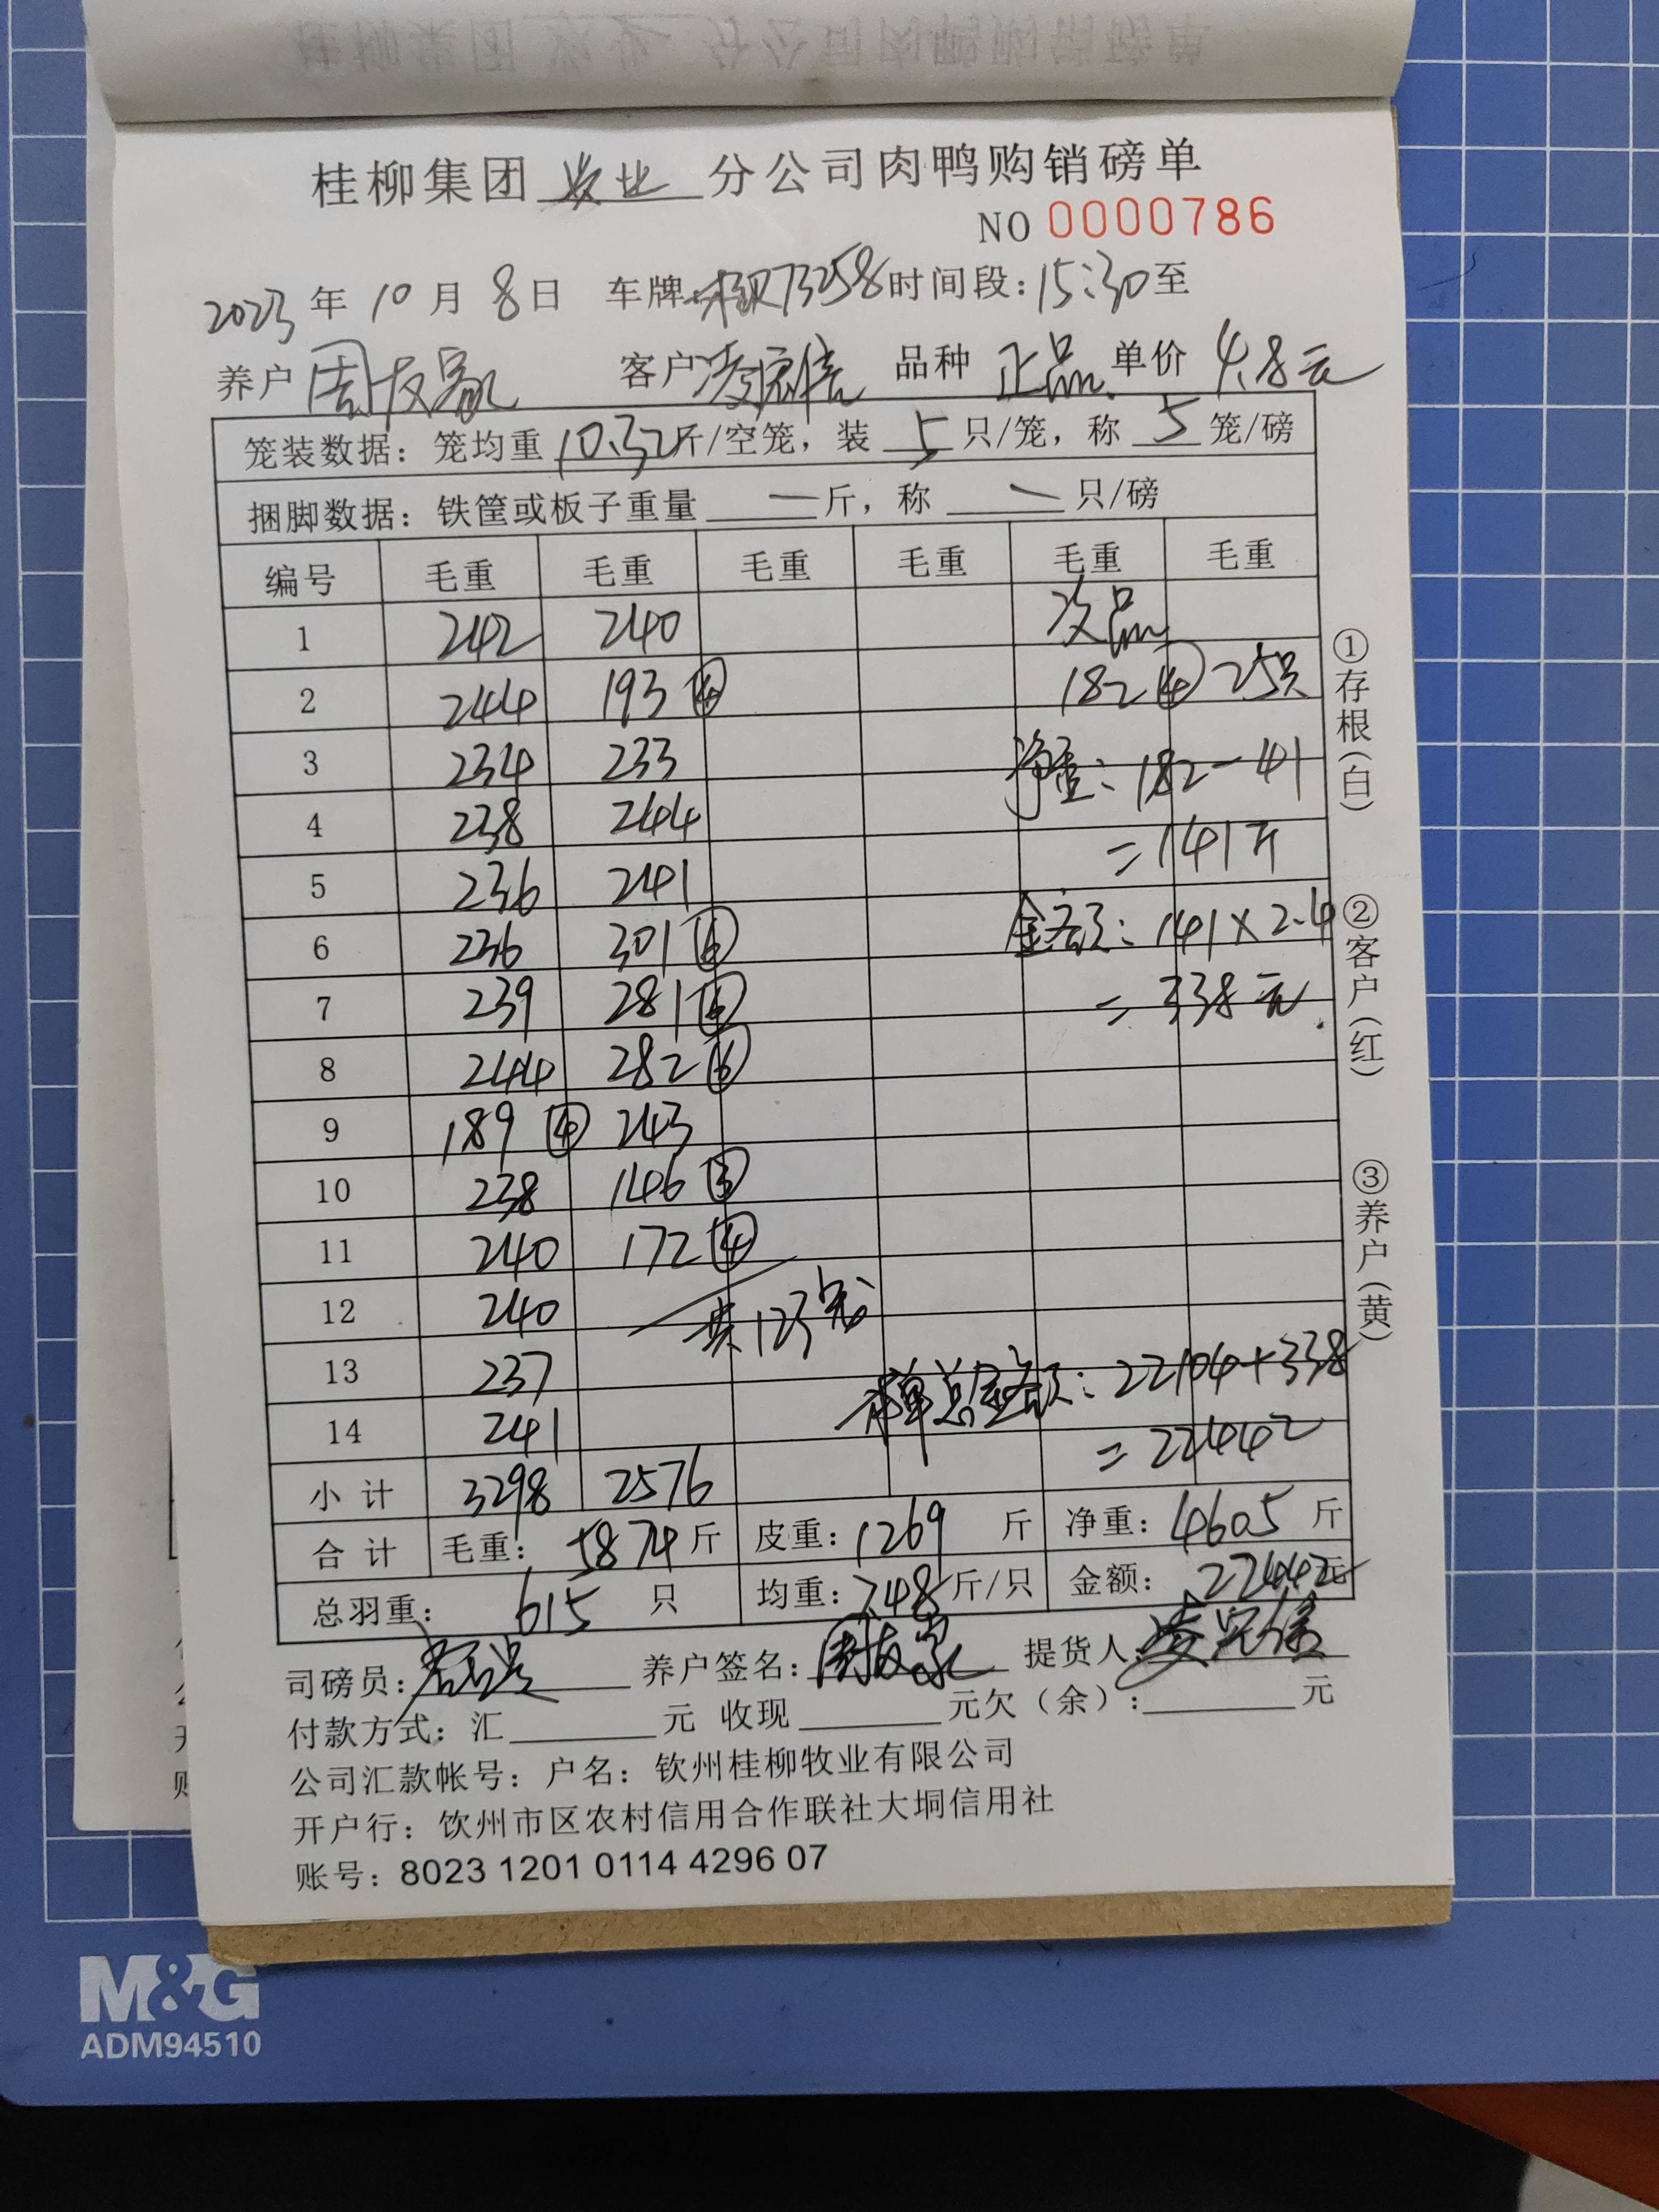 桂柳集团 农业 分公司肉鸭购销磅单
NO 0000786
2023年10月8日 车牌 73258 时间段:15:30至
养户 周友家 客户 凌 信 品种 正品 单价 4.8元
笼装数据:笼均重 10.32 斤/空笼,装 5 只/笼,称 5 笼/磅
捆脚数据:铁筐或板子重量 — 斤,称 — 只/磅
编号 毛重 毛重 毛重 毛重 毛重 毛重
1 242 240 次品
2 244 193 ④ 182 ④ 25只
3 234 233 净重:182-41
4 238 244 =141斤
5 236 241
6 236 301 ⑥ 金额:141×2.4
7 239 281 ⑥ =338元.
8 244 282 ⑥
9 189 ④ 243
10 238 146 ③
11 240 172 ④
12 240 共123笼
13 237 本单总金额:22104+338
14 241 =22442
小计 3298 2576
合计 毛重:5874斤 皮重:1269斤 净重:4605斤
总羽重:615只 均重:7.48斤/只 金额:22442元
司磅员: 养户签名:周友家 提货人:凌 信
付款方式:汇 元 收现 元欠(余): 元
公司汇款帐号:户名:钦州桂柳牧业有限公司
开户行:饮州市区农村信用合作联社大垌信用社
账号:8023 1201 0114 4296 07
①存根(白) ②客户(红) ③养户(黄)
M&G
ADM94510